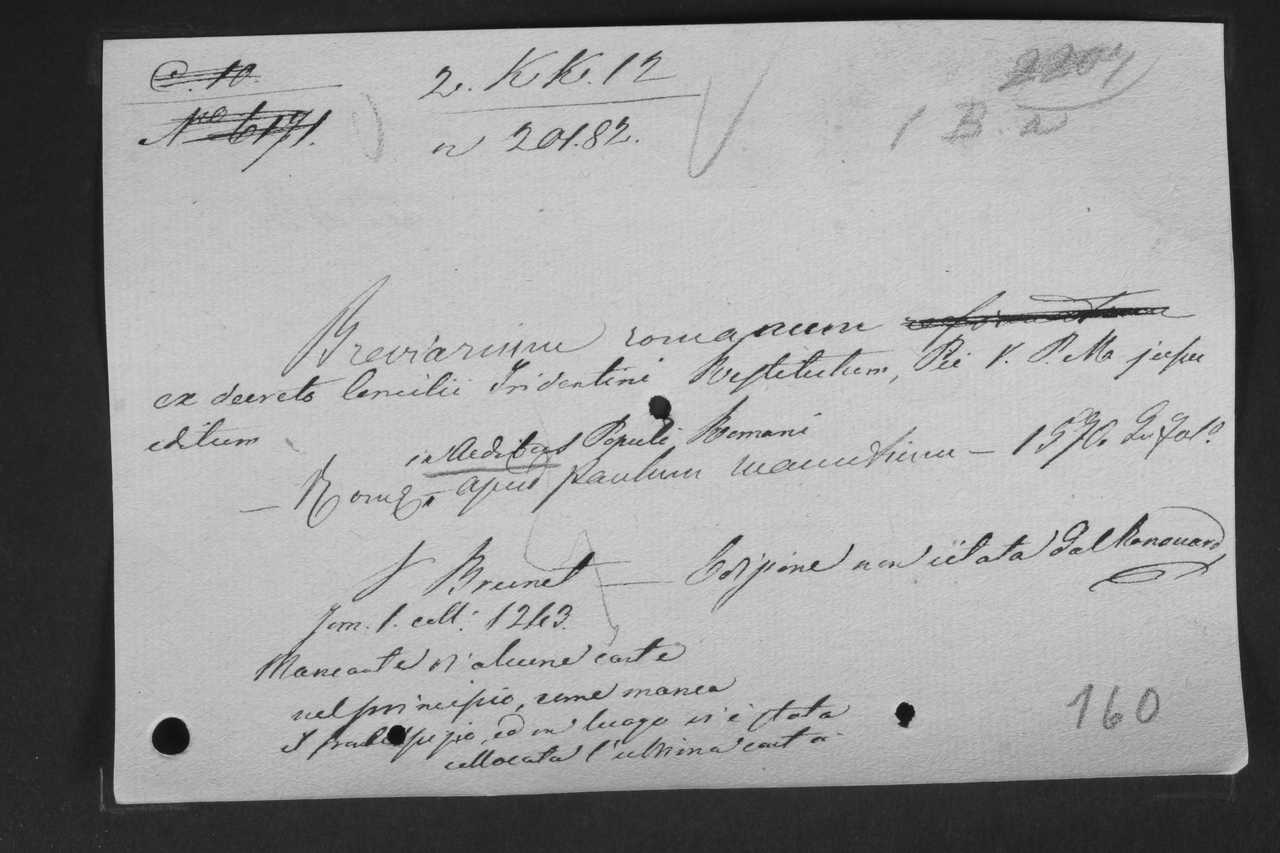 C. 10
2. KK. 12
2204
No 6171.
n 20182.
1 B. a
Breviarium romanum reformatum
ex decreto Concilii Tridentini Restitutum, Pii V. P. Ma jussu
editum
in Aedibus Populi Romani
— Romæ, apud paulum manutium — 1570 in fol.º
V Brunet — Edizione non citata dal Renouard
Tom. 1. coll. 1243.
Mancante di alcune carte
nel principio, come manca
il frontespizio, ed in luogo vi è stata
collocata l'ultima carta
160